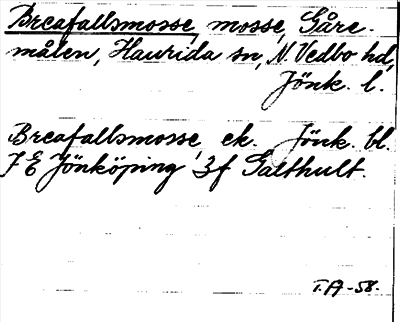 Breafallsmosse, mosse, Gåre-
målen, Haurida sn, N. Vedbo hd,
Jönk. l.
Breafallsmosse, ek. Jönk. bl.
7 E Jönköping 3f Galthult.
T.A-58.